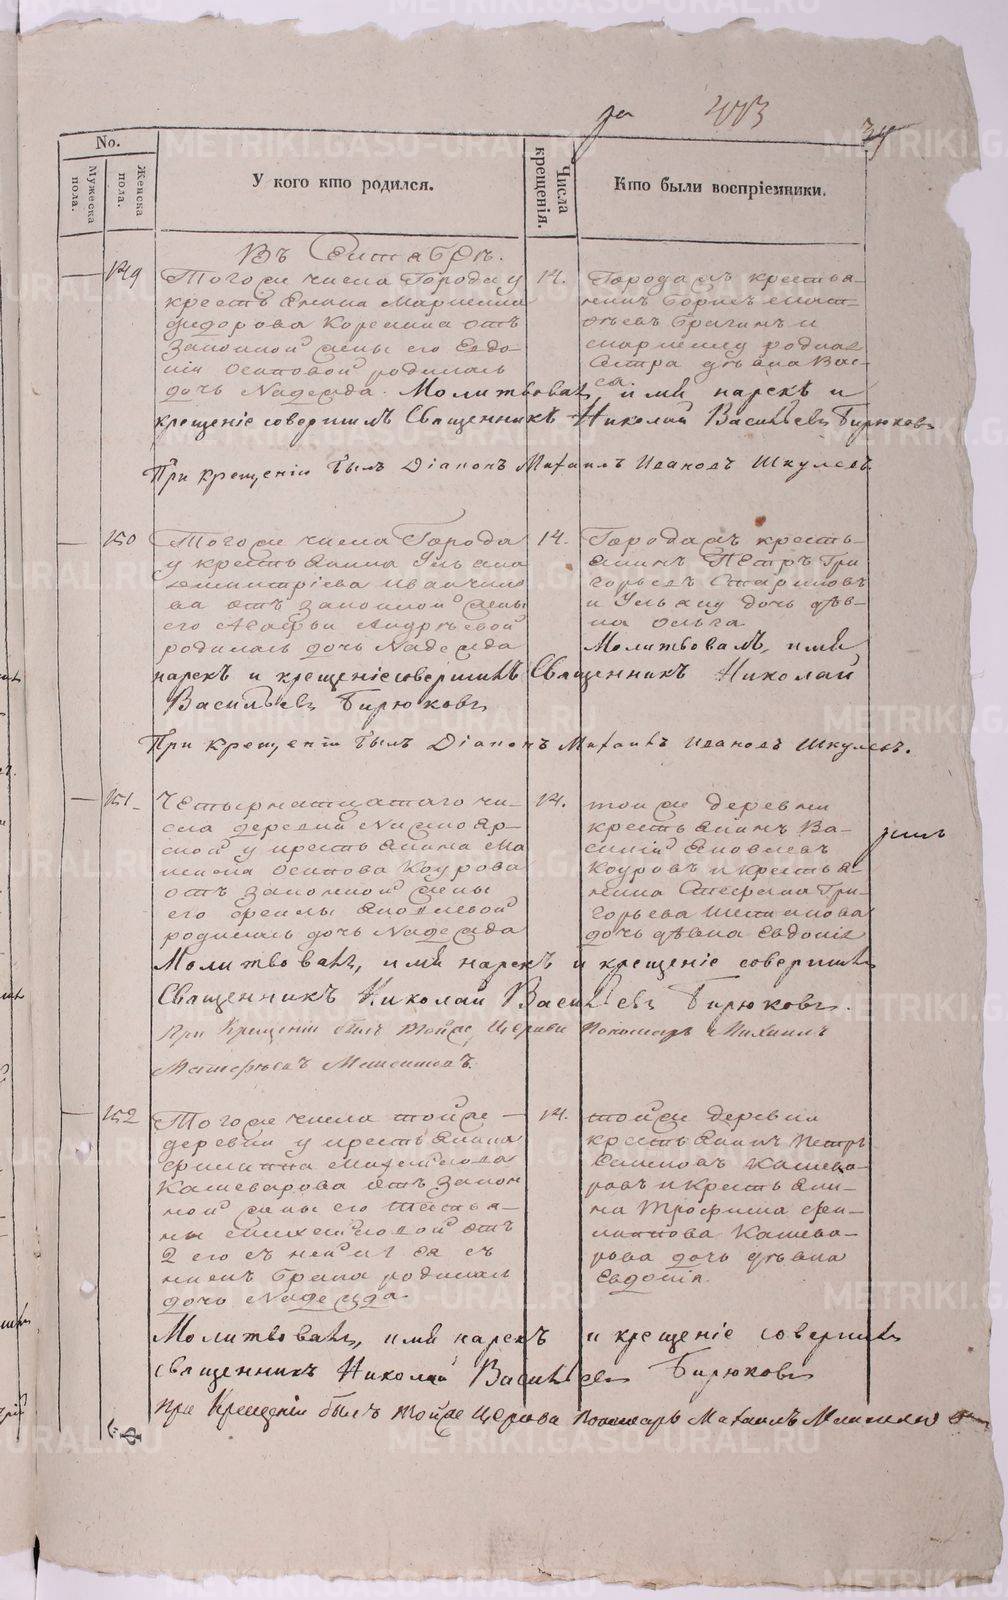 413
No.
Мужеска пола.
Женска пола.
У кого кто родился.
Числа крещенія.
Кто были воспріемники.
Въ Сентябрѣ.
149
Тогоже числа Города у
крестьянина
Федорова Корелина отъ
законной жены его Евдо-
кіи Осиповой родилась
дочь Надежда.
14.
Города жъ крестья-
нинъ Борисъ
Брагинъ и
родная
Сестра дѣвка Вас-
са.
Молитвовалъ, имя нарекъ и
крещеніе совершилъ Священникъ Николай Васильевъ Бирюковъ
При крещеніи былъ Діаконъ Михаилъ Ивановъ Шкулевъ
150
Тогоже числа Города
у крестьянина Ульяна
Димитріева Иванчико
ва отъ законной жены
его Агафьи Андреевой
родилась дочь Надежда
14.
Города жъ кресть-
янинъ Петръ Гри
горьевъ Стариковъ
и Ульяну дочь дѣв-
ка Ольга
Молитвовалъ, имя
нарекъ и крещеніе совершилъ Священникъ Николай
Васильевъ Бирюковъ
При крещеніи былъ Діаконъ Михаилъ Ивановъ Шкулевъ.
151.
Четырнатцатаго чи-
сла деревни Нижнояр-
ской у крестьянина Ма
ксима Осипова Коурова
отъ законной жены
его Феклы Яковлевой
родилась дочь Надежда
14.
тойже деревни
крестьянинъ Ва-
силій Яковлевъ
Коуровъ и крестья-
нина Стефана Гри-
горьева
дочь дѣвка Евдокія
Молитвовалъ, имя нарекъ и крещеніе совершилъ
Священникъ Николай Васильевъ Бирюковъ.
При Крещеніи былъ тойже Церкви Пономарь Михаилъ
152
Тогоже числа тойже
деревни у крестьянина
Филиппа
Кашеварова отъ закон
ной жены его Татья-
ны отъ
2 его съ ней и ея съ
нимъ брака родилась
дочь Надежда.
14.
тойже деревни
крестьянинъ Петръ
Семеновъ Кашева-
ровъ и крестьяни-
на Трофима Фи-
липпова Кашева-
рова дочь дѣвка
Евдокія.
Молитвовалъ, имя нарекъ и крещеніе совершилъ
священникъ Николай Васильевъ Бирюковъ
При Крещеніи былъ тойже Церкви Пономарь Михаилъ
METRIKI.GASO-URAL.RU